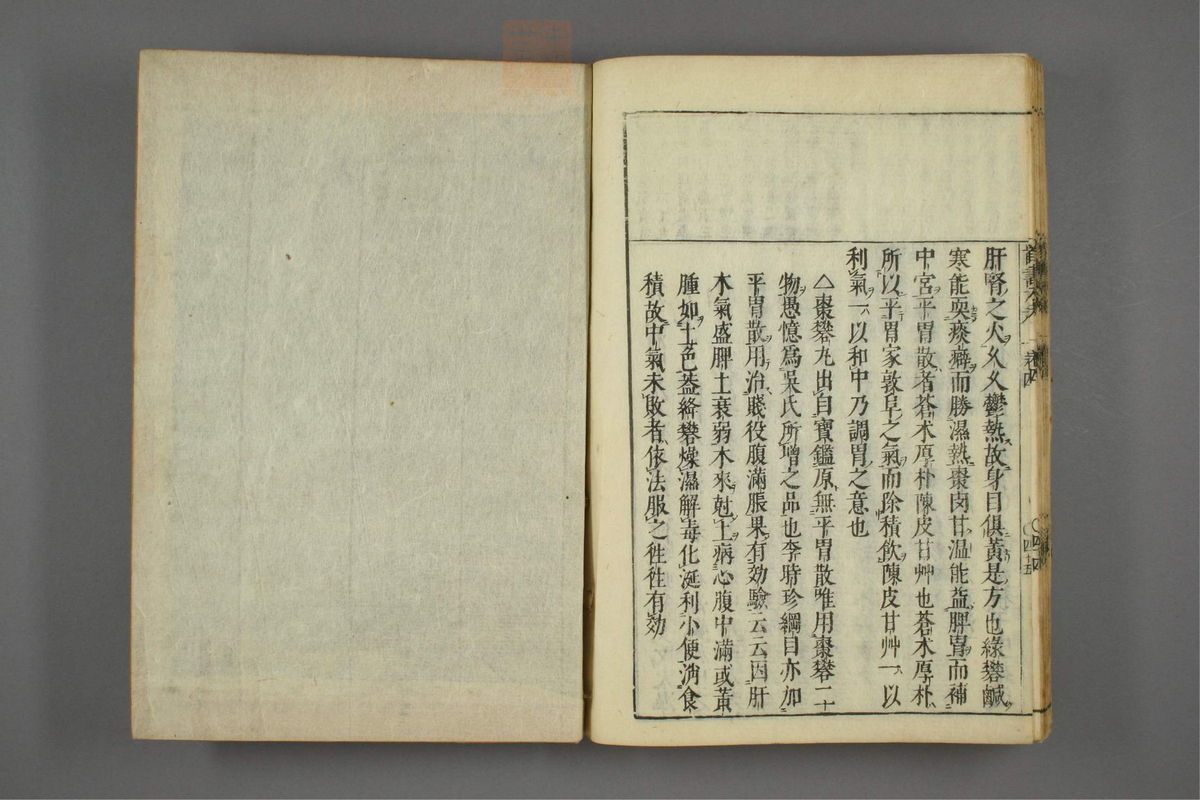 肝腎之火久久鬱熱故身目俱黃是方也綠礬鹹
寒能耎痰癖而勝濕熱棗肉甘温能益脾胃而補
中宮平胃散者蒼朮厚朴陳皮甘艸也蒼朮厚朴
所以平胃家敦阜之氣而除積飲陳皮甘艸一以
利氣一以和中乃調胃之意也
△棗礬丸出自寶鑑原無平胃散唯用棗礬二
物愚憶爲吳氏所增之品也李時珍綱目亦加
平胃散用治賤役腹滿脹果有効驗云云因肝
木氣盛脾土衰弱木來尅土病心腹中滿或黃
腫如土色蓋絳礬燥濕解毒化涎利小便消食
積故中氣未敗者依法服之徃徃有効
卷四
〇四十五